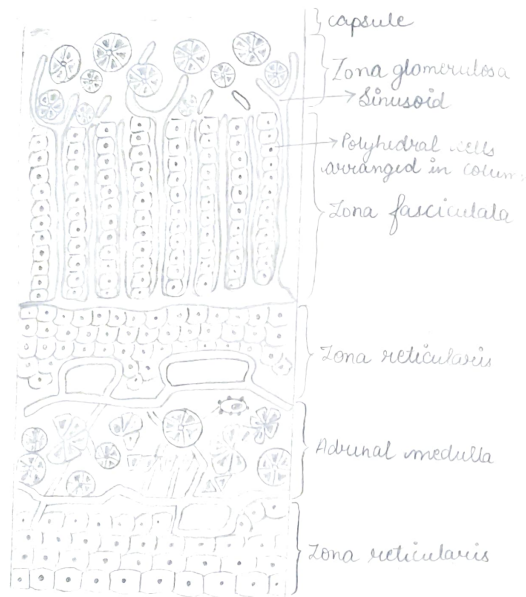 capsule
Zona glomerulosa
Sinusoid
Polyhedral cells
arranged in colum
Zona fasciculata
Zona reticularis
Adrenal medulla
Zona reticularis